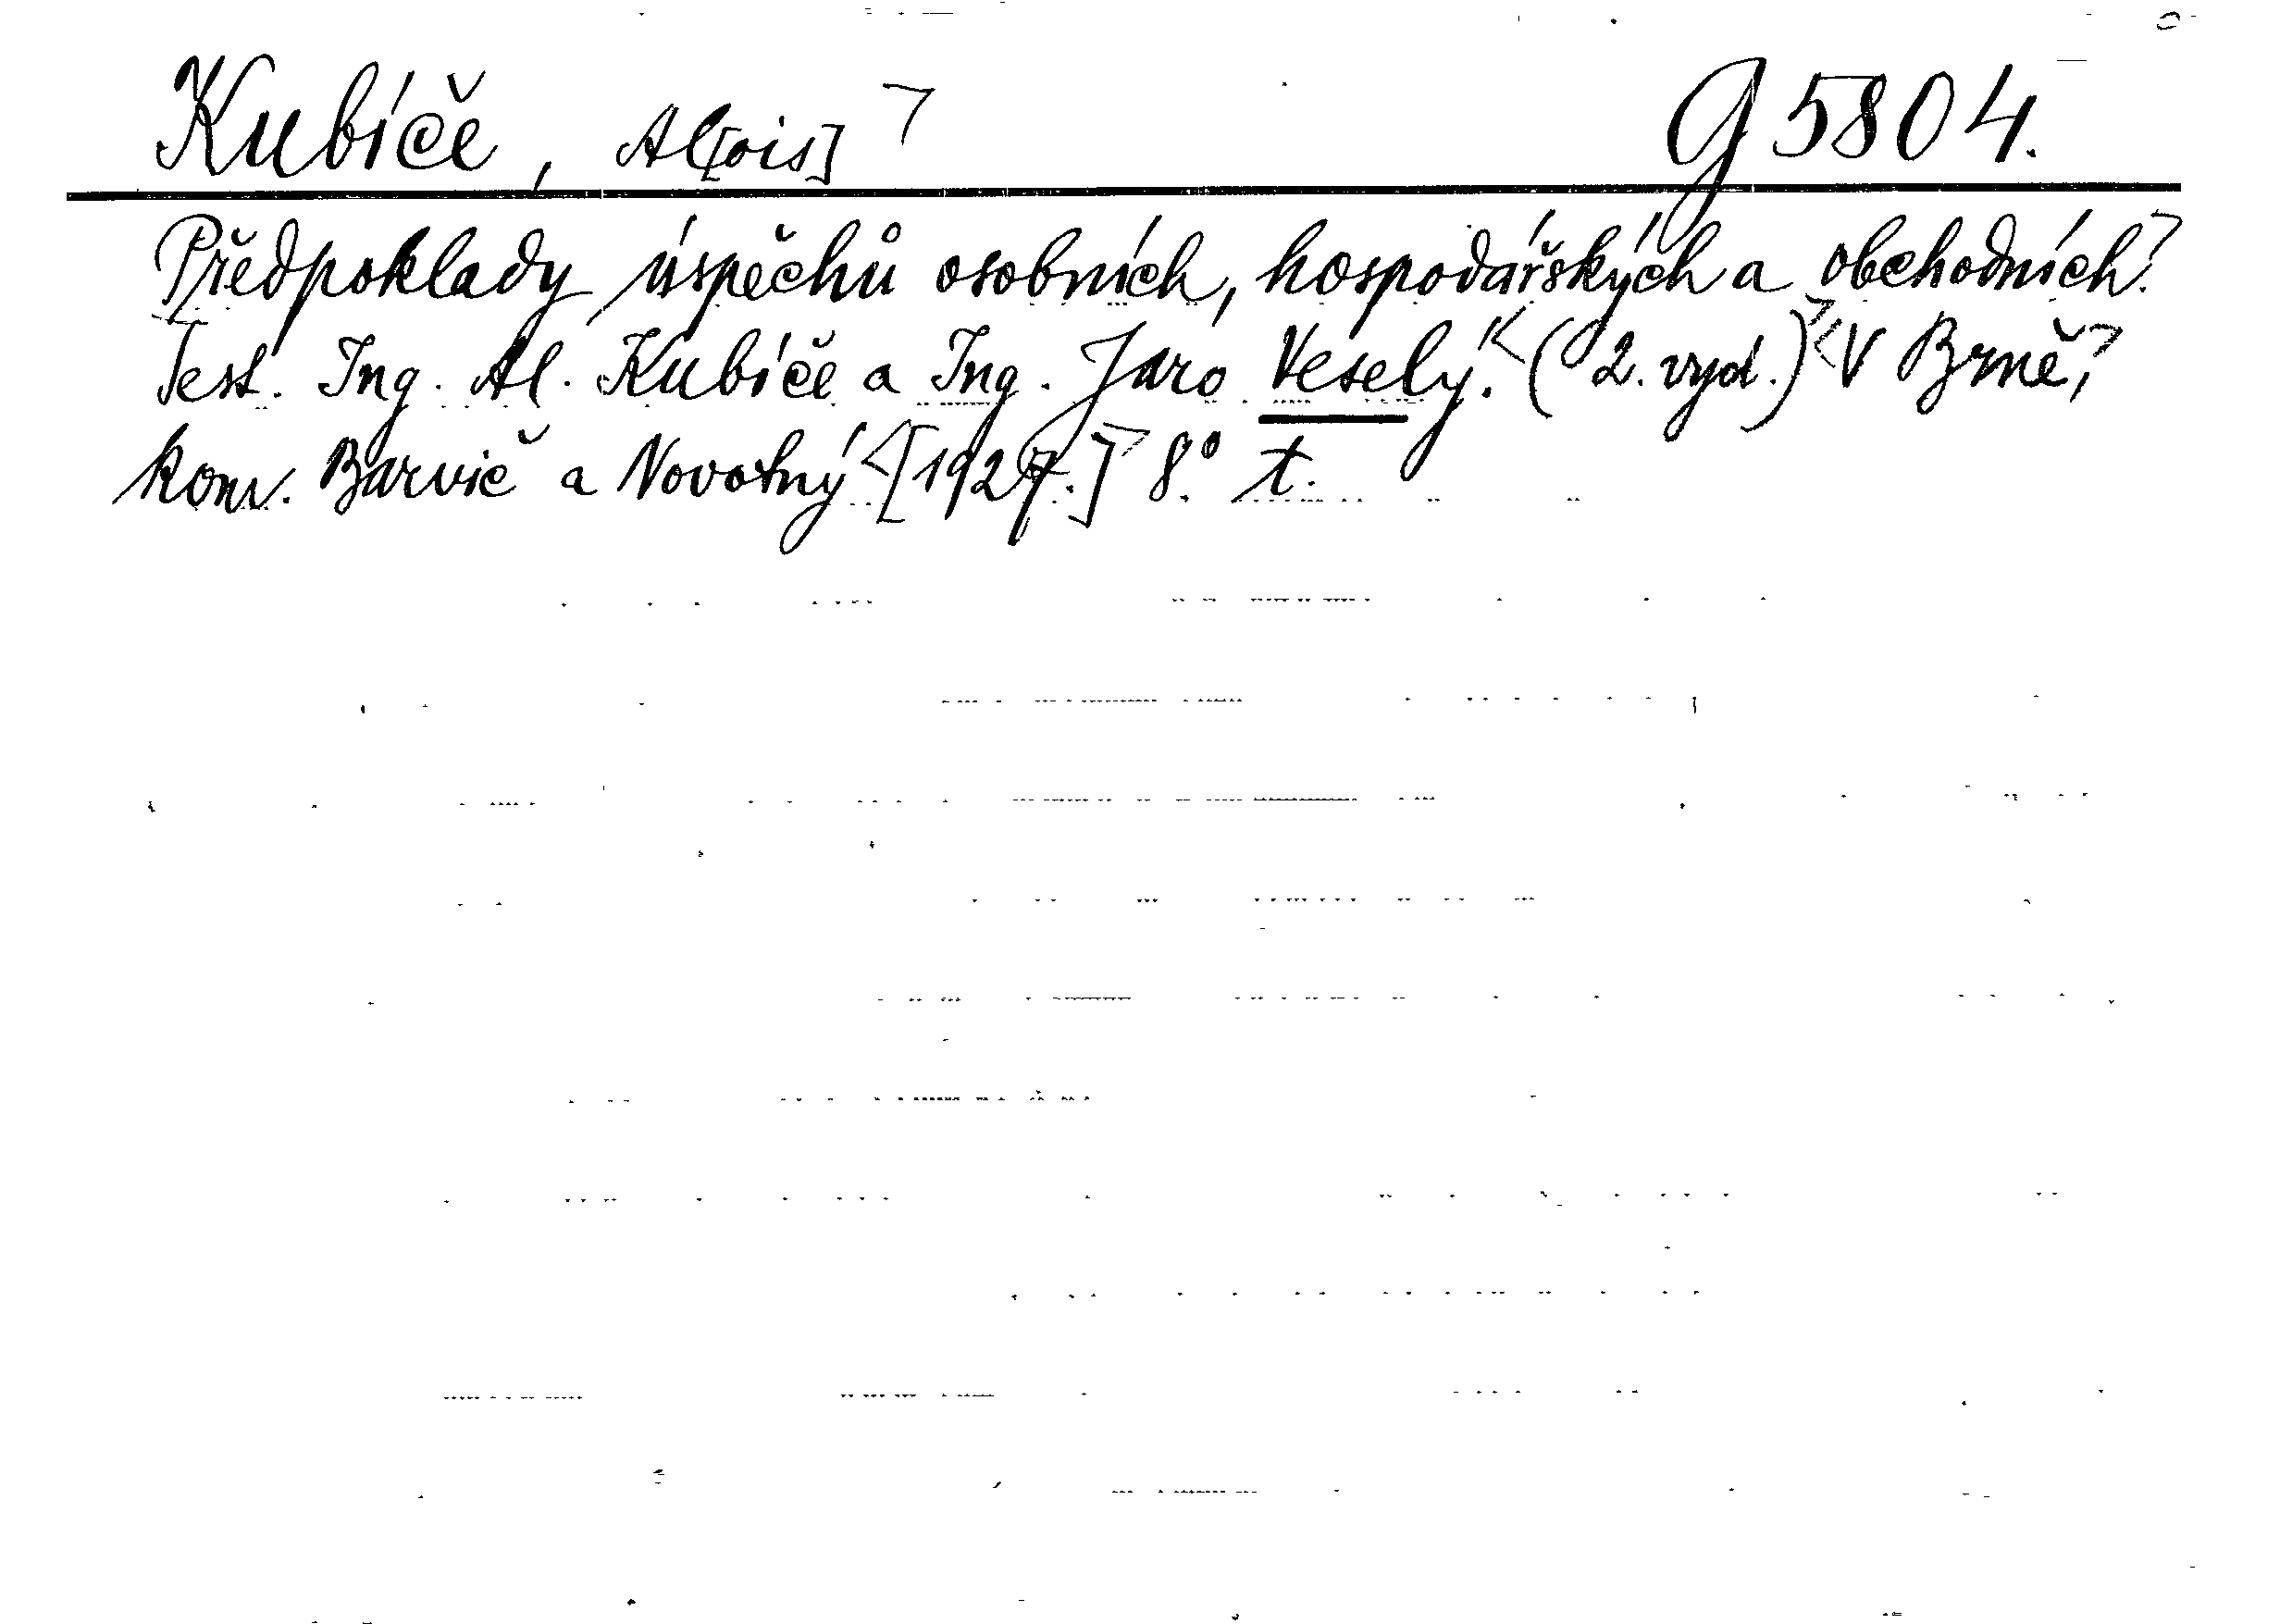 Kubíče, Al[ois] G 5804.
Předpoklady úspěchů osobních, hospodářských a obchodních.
Sest. Ing. Al. Kubíče a Ing. Jaro Veselý. (2. vyd.) V Brně,
kom. Barvič a Novotný [1927.] 8.° t.